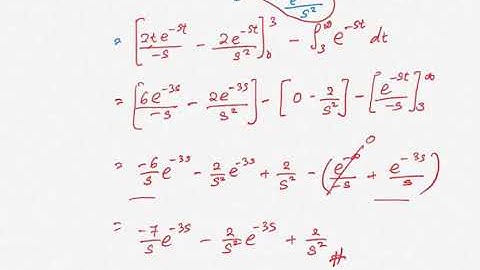 e / s²
= [2te^{-st}/-s - 2e^{-st}/s²]₀³ - ∫₃^∞ e^{-st} dt
= [6e^{-3s}/-s - 2e^{-3s}/s²] - [0 - 2/s²] - [e^{-st}/-s]₃^∞
= -6/s e^{-3s} - 2/s² e^{-3s} + 2/s² - (e^{-∞}/-s + e^{-3s}/s) 0
= -7/s e^{-3s} - 2/s² e^{-3s} + 2/s² #